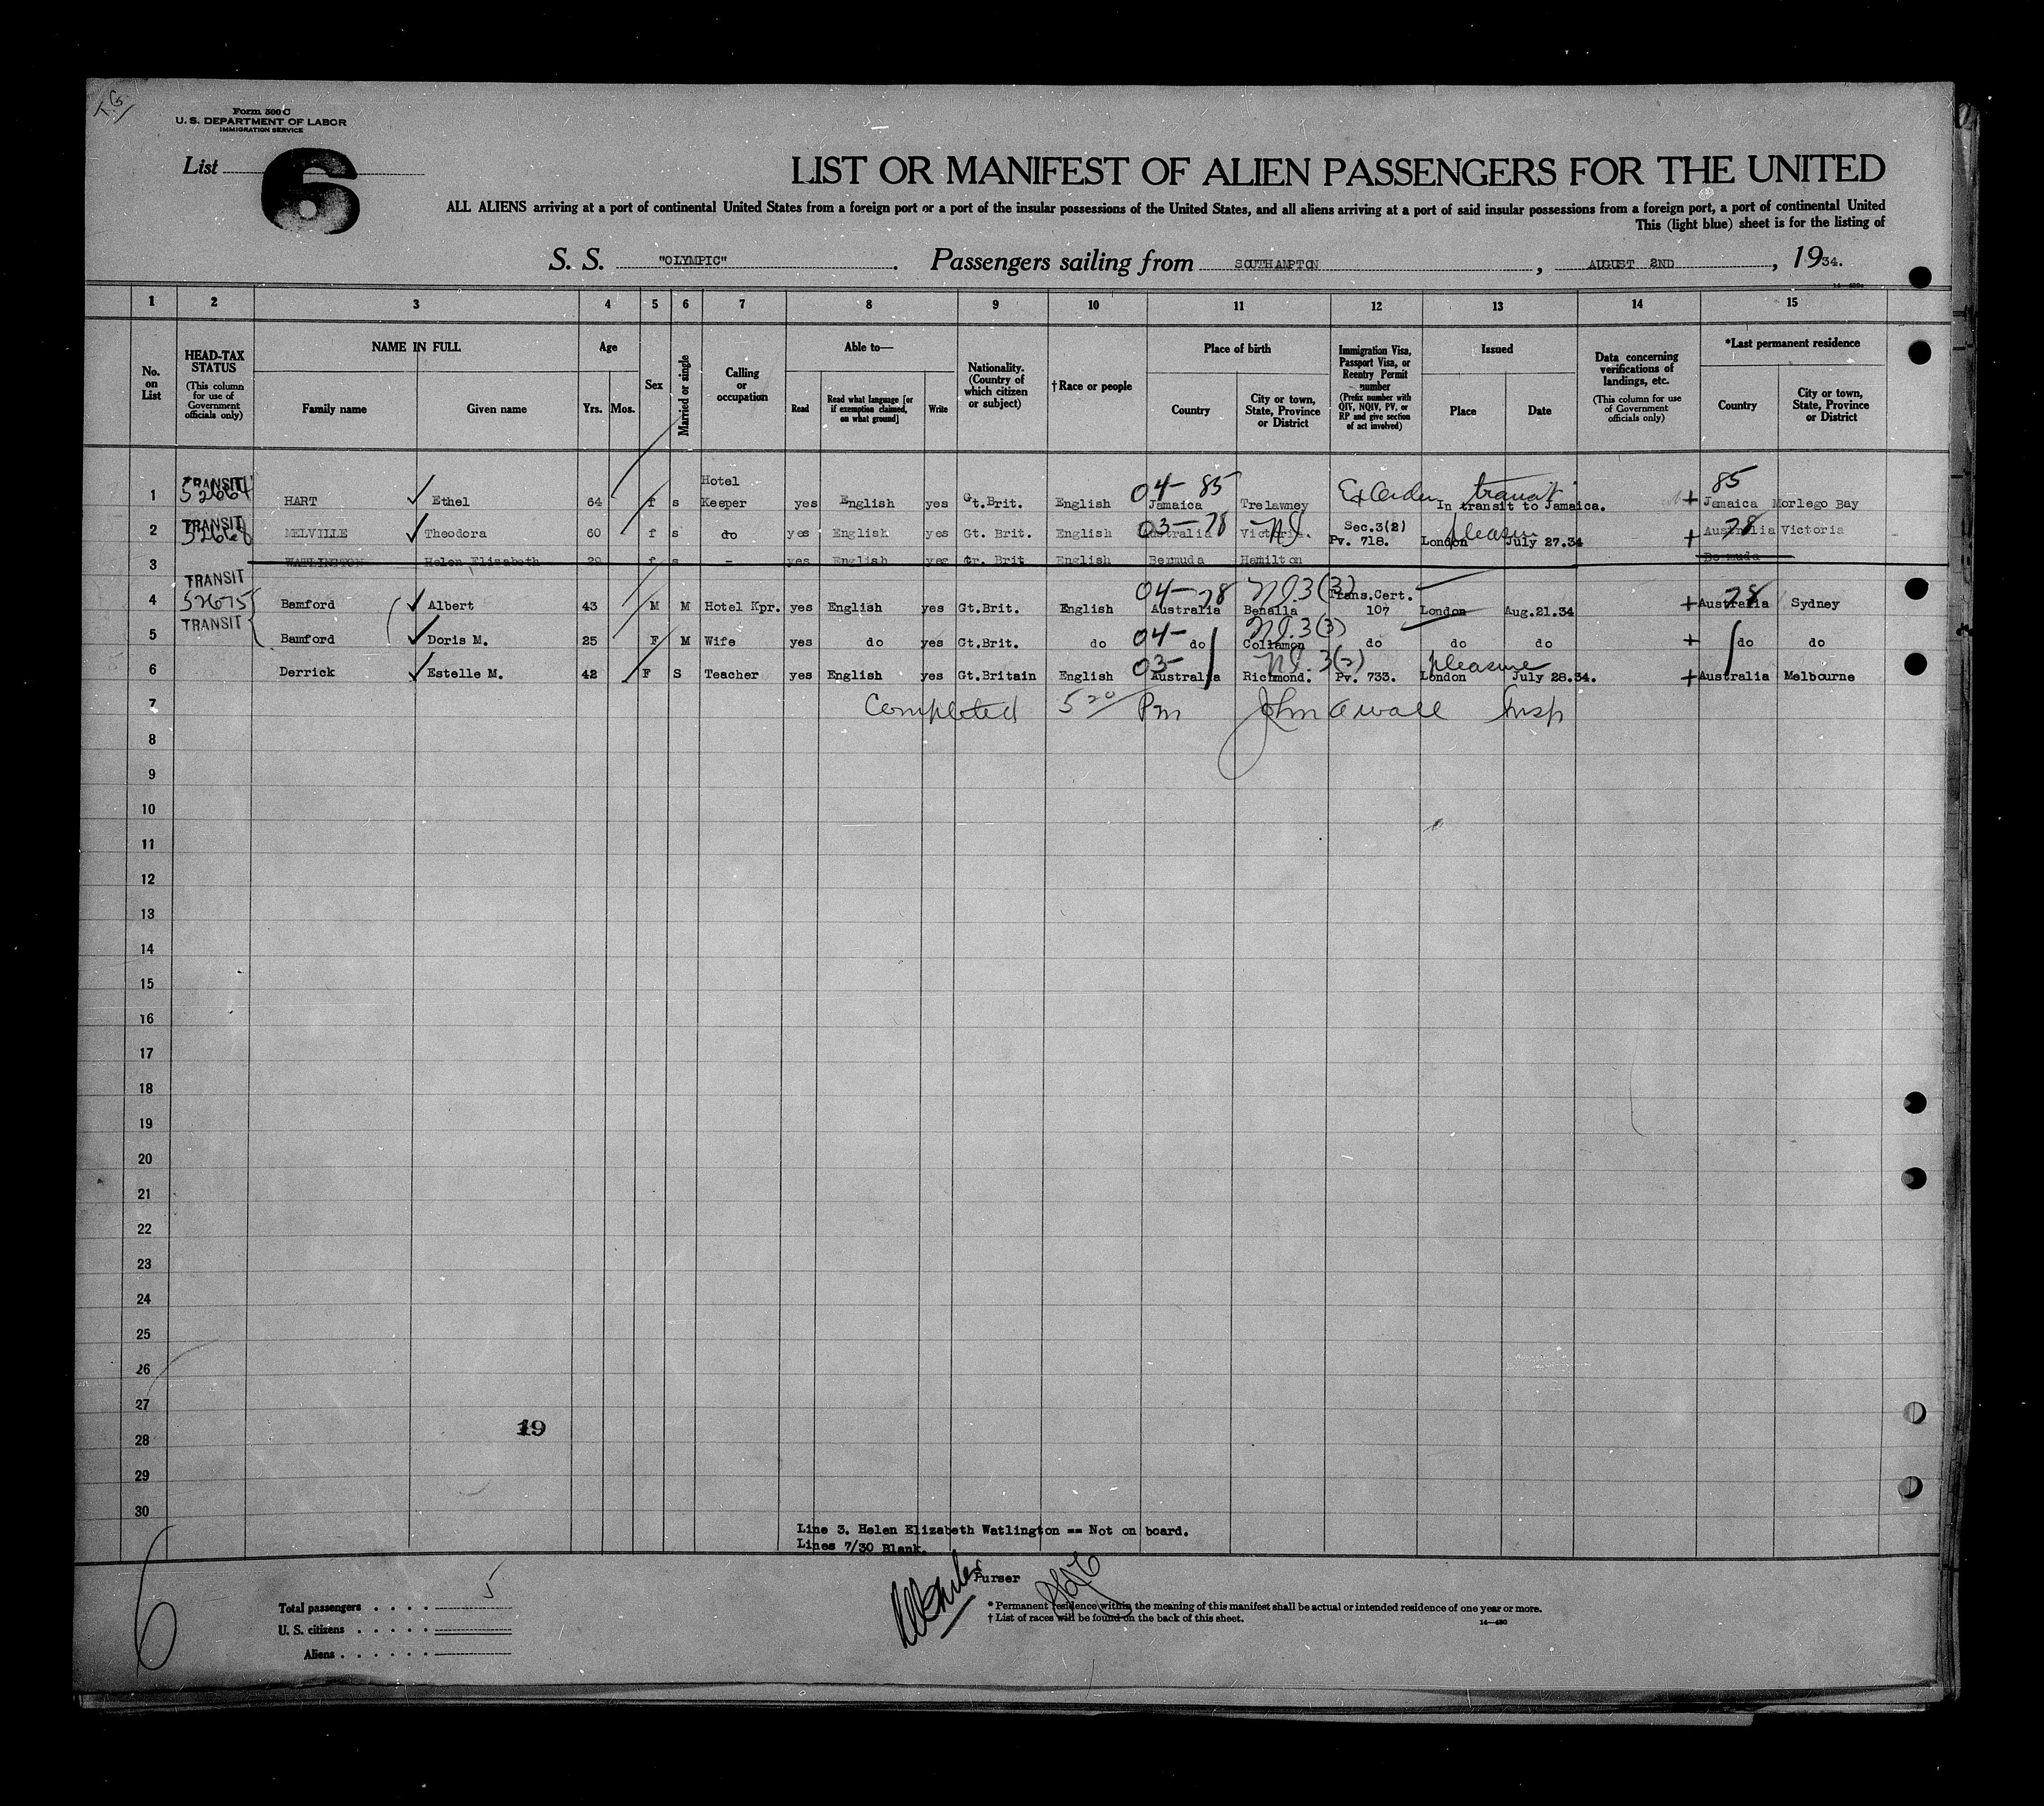 Form 500 C
U. S. DEPARTMENT OF LABOR
IMMIGRATION SERVICE
List 6
LIST OR MANIFEST OF ALIEN PASSENGERS FOR THE UNITED
ALL ALIENS arriving at a port of continental United States from a foreign port or a port of the insular possessions of the United States, and all aliens arriving at a port of said insular possessions from a foreign port, a port of continental United
This (light blue) sheet is for the listing of
S. S. "OLYMPIC". Passengers sailing from SOUTHAMPTON, AUGUST 2ND, 1934.
1 2 3 4 5 6 7 8 9 10 11 12 13 14 15
No. on List
HEAD-TAX STATUS (This column for use of Government officials only)
NAME IN FULL
Family name Given name
Age
Yrs. Mos.
Sex
Married or single
Calling or occupation
Able to—
Read Read what language [or if exemption claimed, on what ground] Write
Nationality. (Country of which citizen or subject)
†Race or people
Place of birth
Country City or town, State, Province or District
Immigration Visa, Passport Visa, or Reentry Permit number (Prefix number with QIV, NQIV, PV, or RP and give section of act involved)
Issued
Place Date
Data concerning verifications of landings, etc. (This column for use of Government officials only)
*Last permanent residence
Country City or town, State, Province or District
1 TRANSIT 52664 HART Ethel 64 f s Hotel Keeper yes English yes Gt.Brit. English 04- 85 Jamaica Trelawney transit In transit to Jamaica. + 85 Jamaica Morlego Bay
2 TRANSIT 52668 MELVILLE Theodora 60 f s do yes English yes Gt. Brit. English 03-78 Australia Victoria. Sec.3(2) Pv. 718. London pleasure July 27.34 + 78 Australia Victoria
3 WATLINGTON Helen Elizabeth 29 f s - yes English yes Gr. Brit English Bermuda Hamilton Bermuda
4 TRANSIT 52675 Bamford Albert 43 M M Hotel Kpr. yes English yes Gt.Brit. English 04-78 Australia Benalla 3(3) Trans.Cert. 107 London Aug.21.34 + 78 Australia Sydney
5 TRANSIT Bamford Doris M. 25 F M Wife yes do yes Gt.Brit. do 04- do Collamon 3(3) do do do + do do
6 Derrick Estelle M. 42 F S Teacher yes English yes Gt.Britain English 03- Australia Richmond. 3(2) Pv. 733. London pleasure July 28.34. + Australia Melbourne
7 Completed 5 20 Pm John A Wall Insp
8
9
10
11
12
13
14
15
16
17
18
19
20
21
22
23
24
25
26
27
19
28
29
30
Line 3. Helen Elizabeth Watlington == Not on board.
Lines 7/30 Blank.
Purser
Total passengers . . . . 5
U. S. citizens . . . . .
Aliens . . . . . .
* Permanent residence within the meaning of this manifest shall be actual or intended residence of one year or more.
† List of races will be found on the back of this sheet.
14—430
6